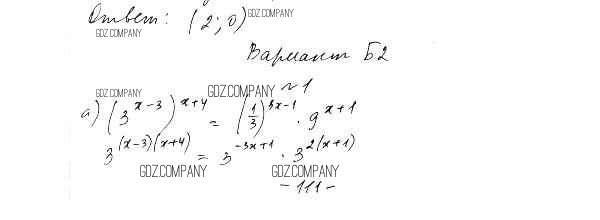 Ответ: (2; 0) GDZ.COMPANY
GDZ.COMPANY
Вариант Б2
GDZ.COMPANY GDZ.COMPANY №1
а) (3^{x-3})^{x+4} = (1/3)^{3x-1} · 9^{x+1}
3^{(x-3)(x+4)} = 3^{-3x+1} · 3^{2(x+1)}
GDZ.COMPANY GDZ.COMPANY
- 111 -